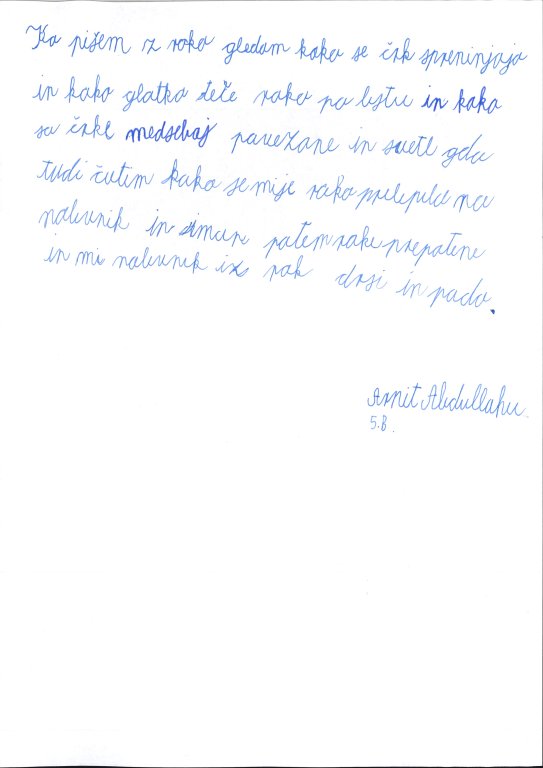 Ko pišem z roko gledam kako se črk spreninjajo
in kako glatko teče roko po listu in kako
so črke medsebaj povezane in svete gda
tudi čutim kako se mije roko prilepila na
nalivnik in imam potem roke prepotene
in mi nalivnik iz rok drsi in pado.
Arnit Abdullahu.
5.B.